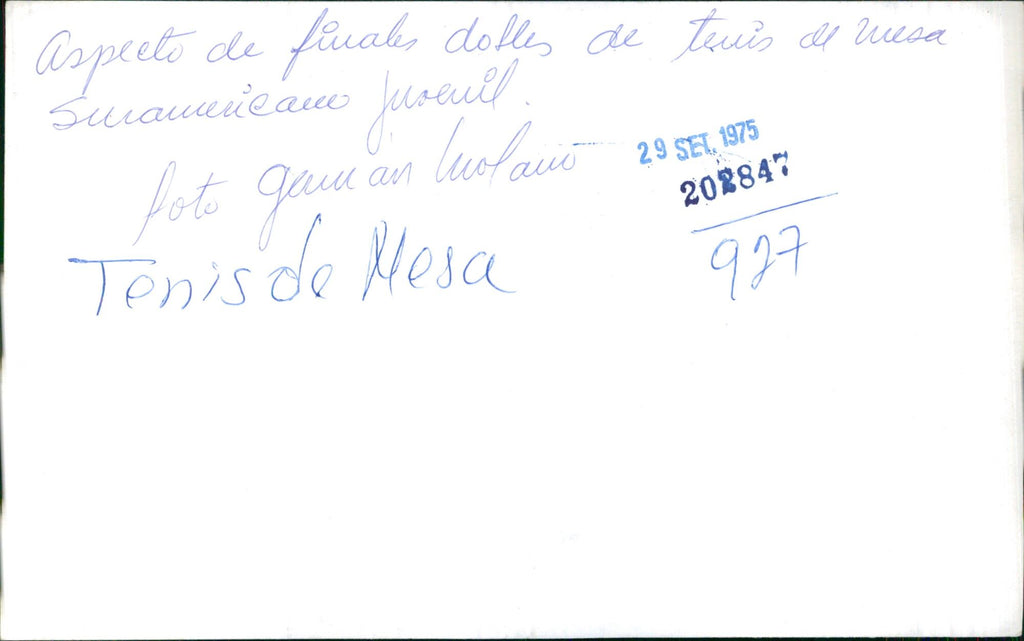 Aspecto de finales dobles de tenis de mesa
Suramericano juvenil.
foto German Molano
29 SET. 1975
202847
927
Tenis de Mesa